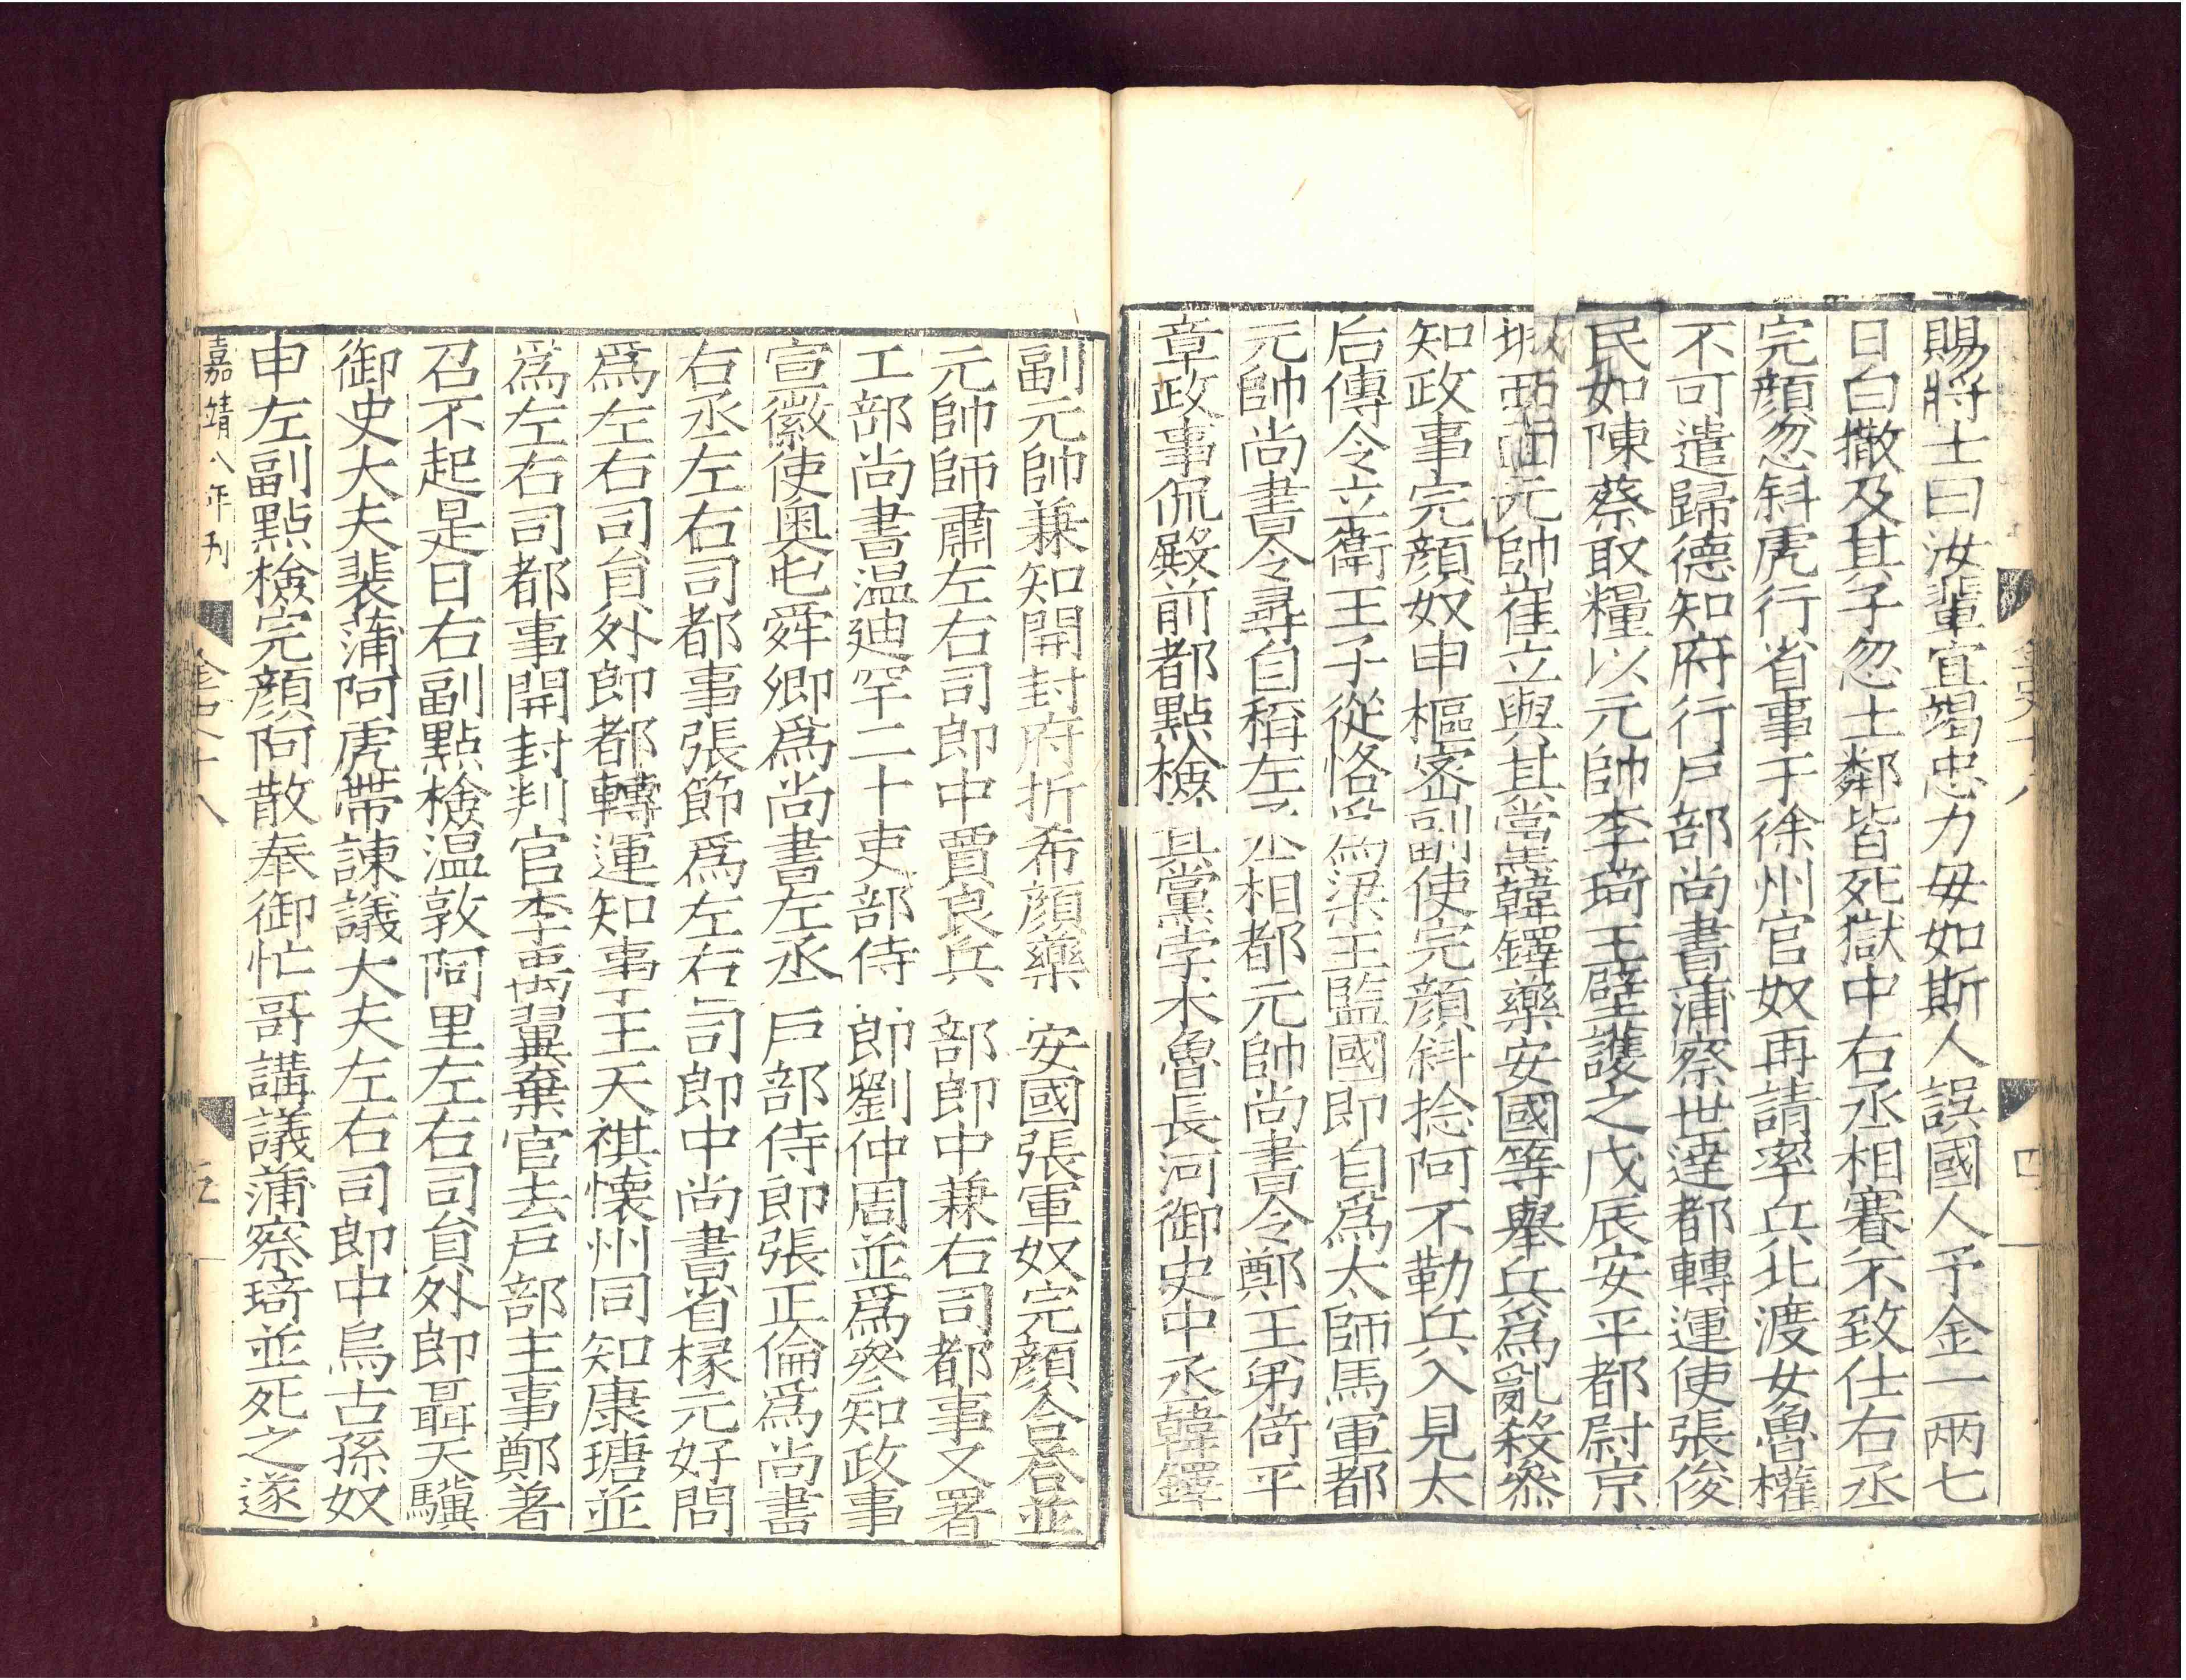 賜將士曰汝輩宜竭忠力毋如斯人誤國人予金一兩七
日白撒及其子忽土鄰皆死獄中右丞相賽不致仕右丞
完顏忽斜虎行省事于徐州官奴再請率兵北渡女魯權
不可遣歸德知府行戶部尚書蒲察世達都轉運使張俊
民如陳蔡取糧以元帥李琦王壁護之戊辰安平都尉京
城西面元帥崔立與其黨韓鐸藥安國等舉兵爲亂殺叅
知政事完顏奴申樞密副使完顏斜捻阿不勒兵入見太
后傳令立衞王子從恪爲梁王監國即自爲太師馬軍都
元帥尚書令尋自稱左丞相都元帥尚書令鄭王弟倚平
章政事侃殿前都點檢其黨孛术魯長河御史中丞韓鐸
金史十八
四
副元帥兼知開封府折希顏藥安國張軍奴完顏合荅並
元帥師肅左右司郎中賈良兵部郎中兼右司都事又署
工部尚書温迪罕二十吏部侍郎劉仲周並爲叅知政事
宣徽使奧屯舜卿爲尚書左丞戶部侍郎張正倫爲尚書
右丞左右司都事張節爲左右司郎中尚書省掾元好問
爲左右司負外郎都轉運知事王天祺懷州同知康瑭並
爲左右司都事開封判官李禹翼棄官去戶部主事鄭著
召不起是日右副點檢温敦阿里左右司負外郎聶天驥
御史大夫裴蒲阿虎帶諫議大夫左右司郎中烏古孫奴
申左副點檢完顏阿散奉御忙哥講議蒲察琦並死之遂
嘉靖八年刊
金史十八
五